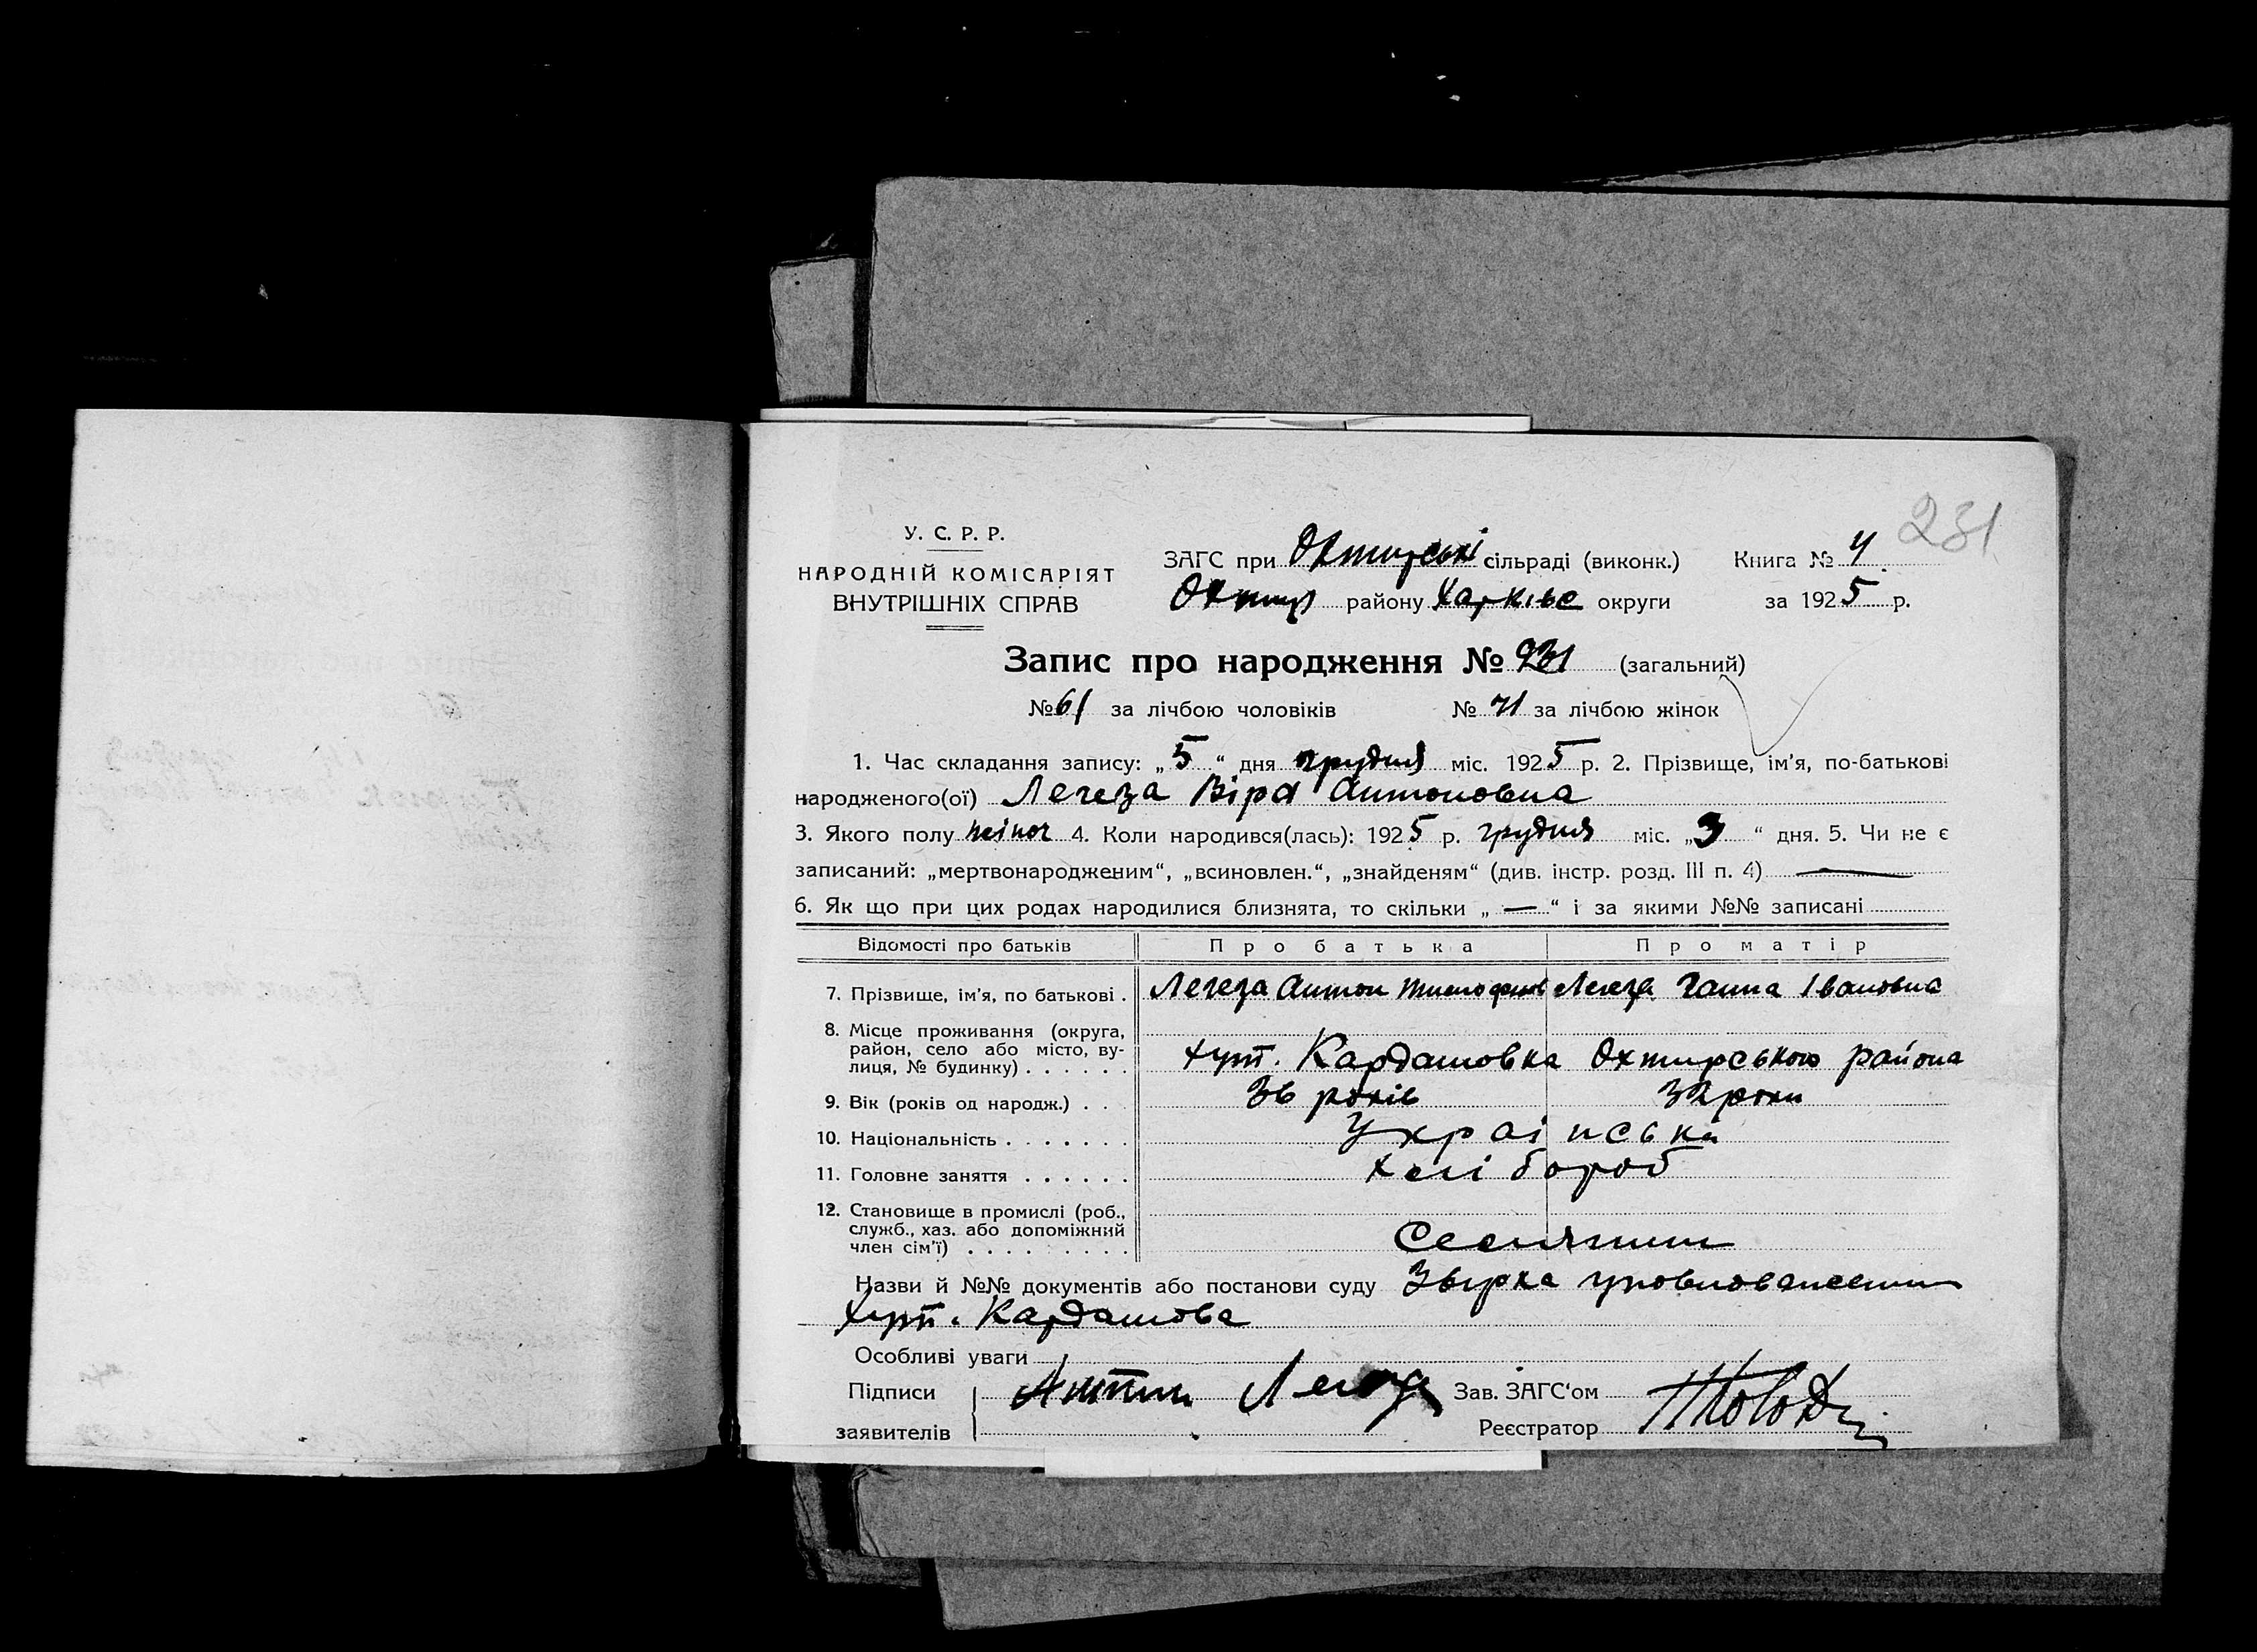 231
У. С. Р. Р.
НАРОДНІЙ КОМІСАРІЯТ
ВНУТРІШНІХ СПРАВ
ЗАГС при Охтирські сільраді (виконк.) Книга № 4
Охтир району Харківс округи за 1925 р.
Запис про народження № 231 (загальний)
№ 61 за лічбою чоловіків № 71 за лічбою жінок
1. Час складання запису: „5“ дня грудня міс. 1925 р. 2. Прізвище, ім'я, по-батькові
народженого(ої) Легеза Віра Антоновна
3. Якого полу жіноч 4. Коли народився(лась): 1925 р. грудня міс. „3“ дня. 5. Чи не є
записаний: „мертвонародженим“, „всиновлен.“, „знайденям“ (див. інстр. розд. III п. 4) —
6. Як що при цих родах народилися близнята, то скільки „—“ і за якими №№ записані
Відомості про батьків Про батька Про матір
7. Прізвище, ім'я, по батькові . Легеза Антон Тимофеев Легеза Ганна Івановна
8. Місце проживання (округа,
район, село або місто, ву-
лиця, № будинку) . . . . . . хут. Кардашовка Охтирського района
9. Вік (років од народж.) . . . 36 років 32 роки
10. Національність . . . . . . . Українська
11. Головне заняття . . . . . . Хлібороб
12. Становище в промислі (роб.,
служб., хаз. або допоміжний
член сім'ї) . . . . . . . . . Селянин
Назви й №№ документів або постанови суду
хут. Кардашова
Особливі уваги
Підписи Антон Легеза Зав. ЗАГС'ом
заявителів Реєстратор